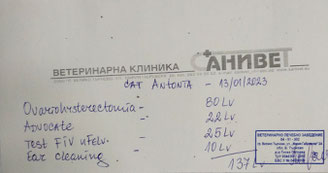 ВЕТЕРИНАРНА КЛИНИКА САНИВЕТ
CAT ANTONIA - 13/01/2023
Ovariohysterectomia - 80 LV
Advocate - 22 LV
Test FiV нFelv. - 25 LV
Ear cleaning - 10 LV
137 LV
ВЕТЕРИНАРНО ЛЕЧЕБНО ЗАВЕДЕНИЕ